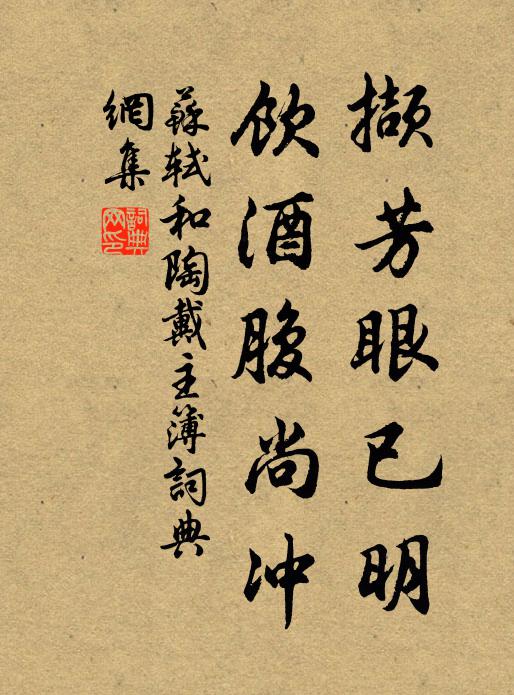 擷芳眼已明
飲酒腹尚冲
蘇軾和陶戴主簿詞典
網集
詞典
网印